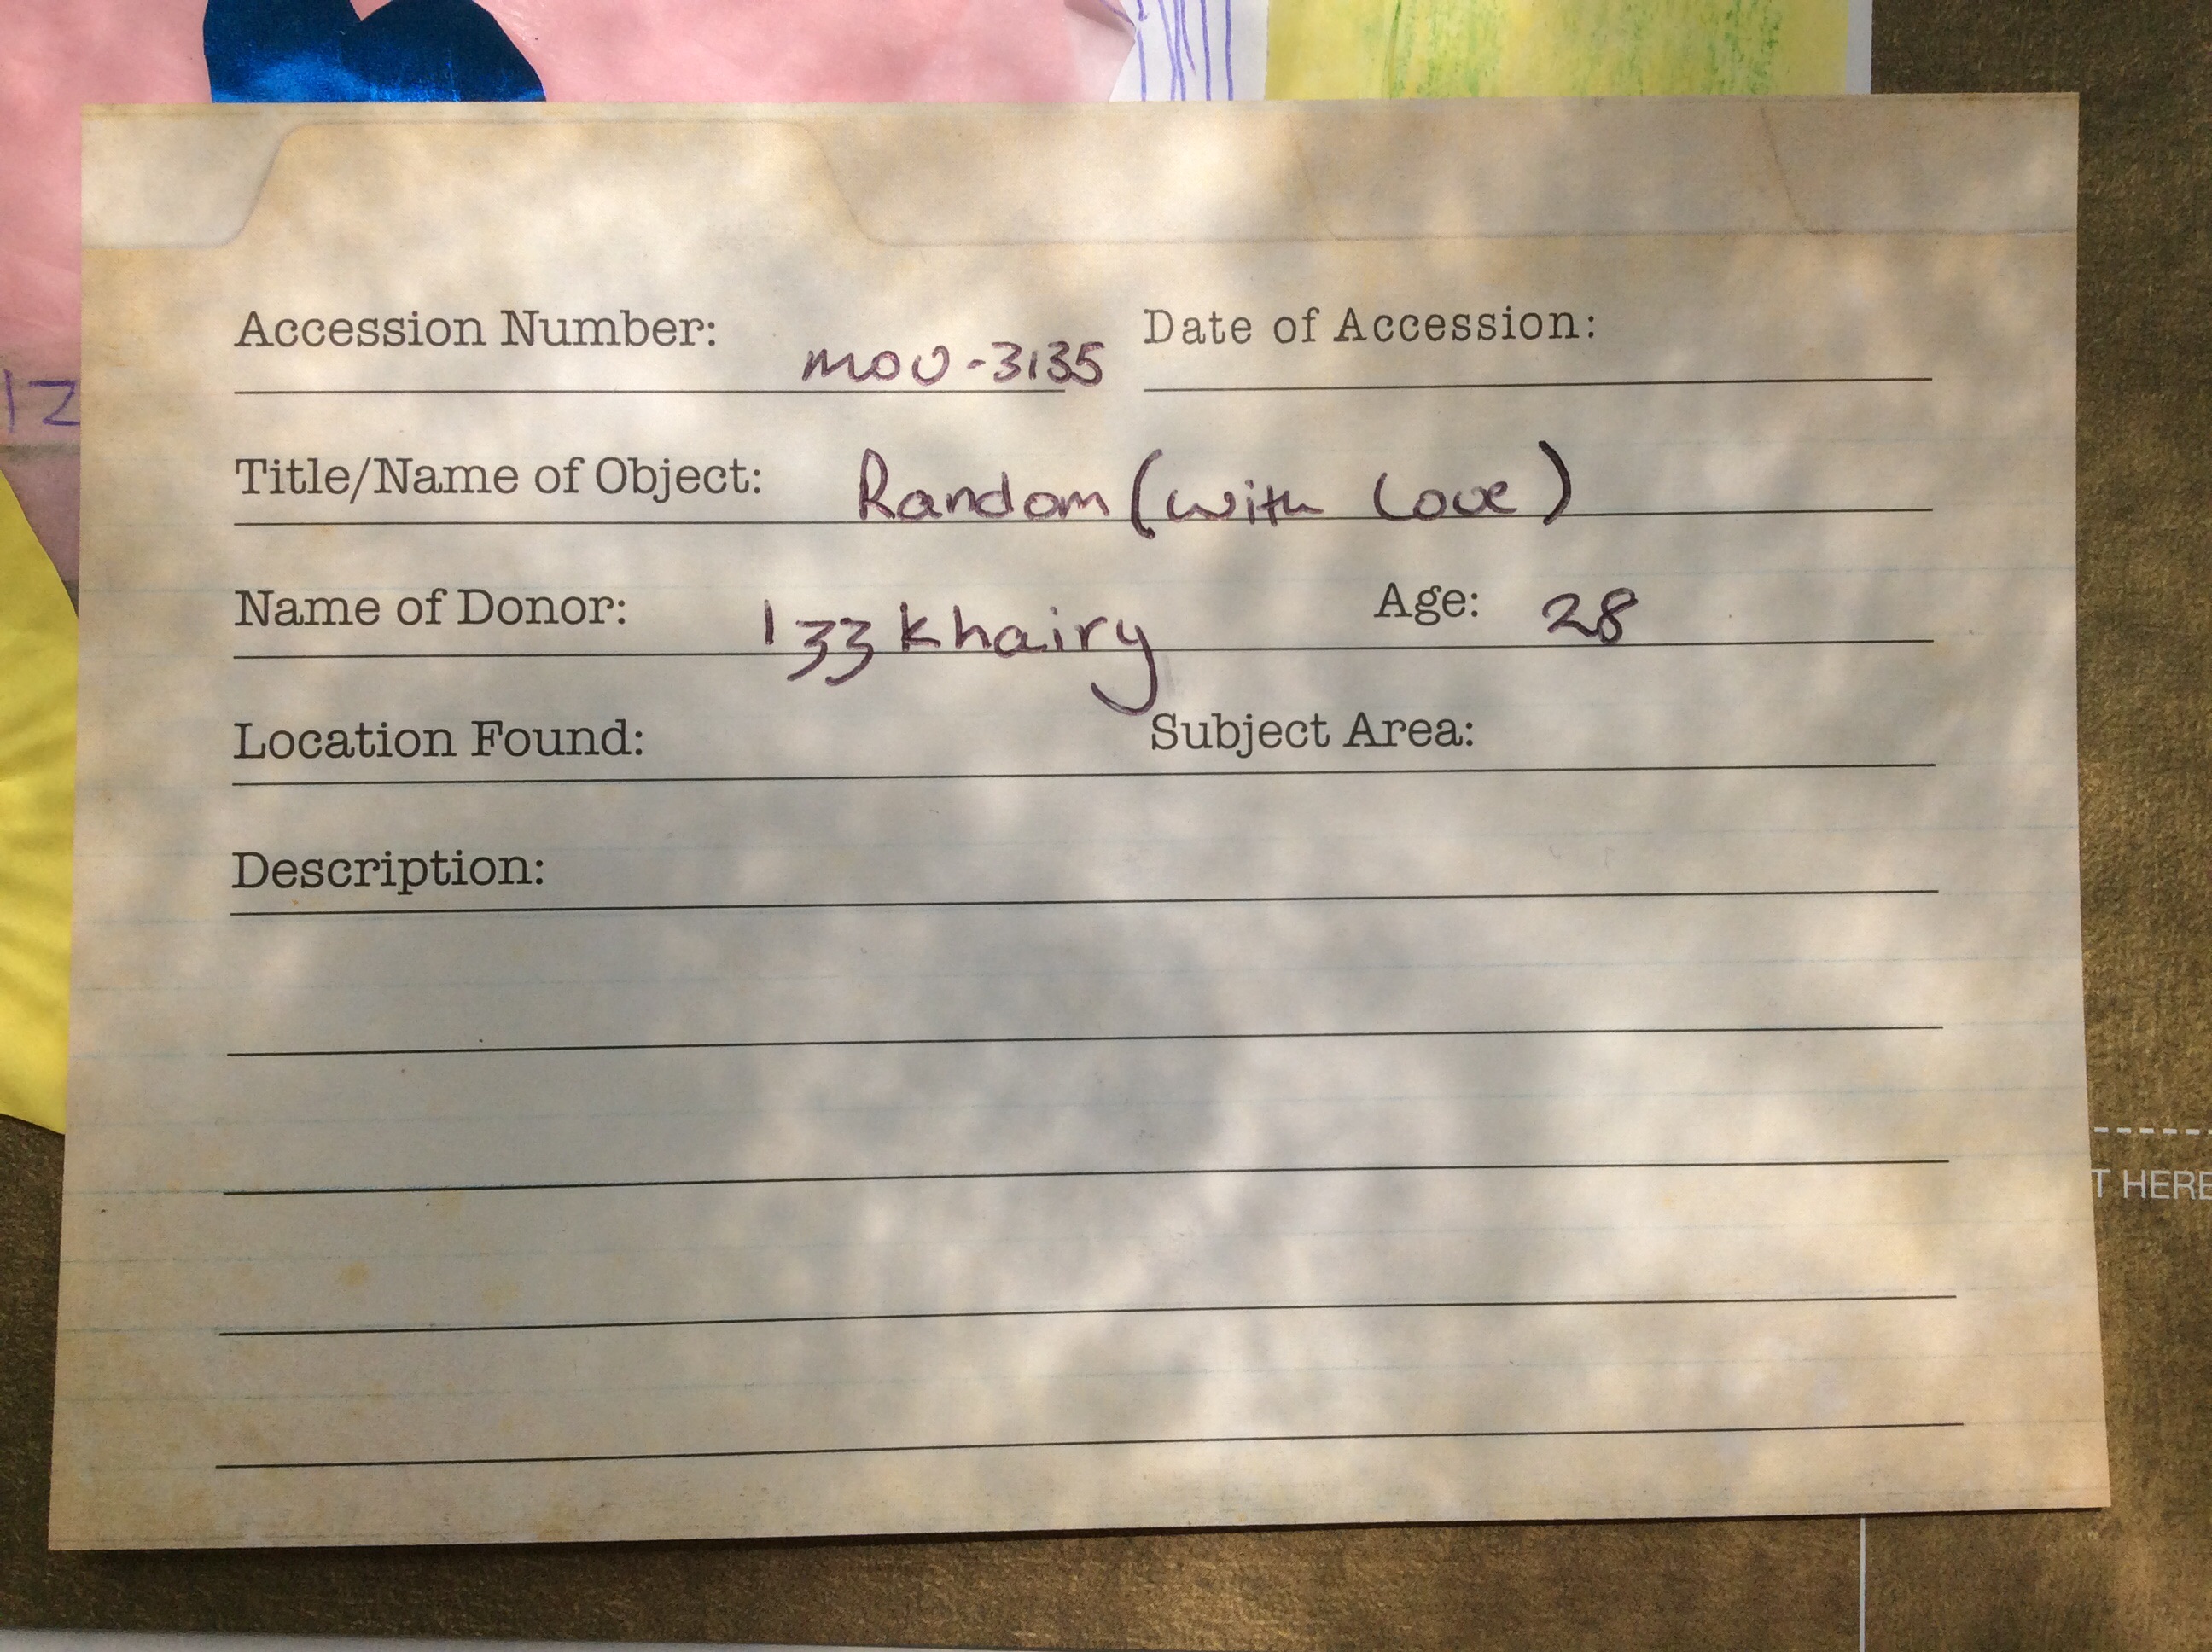 Accession Number: MOU-3135 Date of Accession:
Title/Name of Object: Random (with Love)
Name of Donor: Izzkhairy Age: 28
Location Found: Subject Area:
Description:
IZ
T HERE